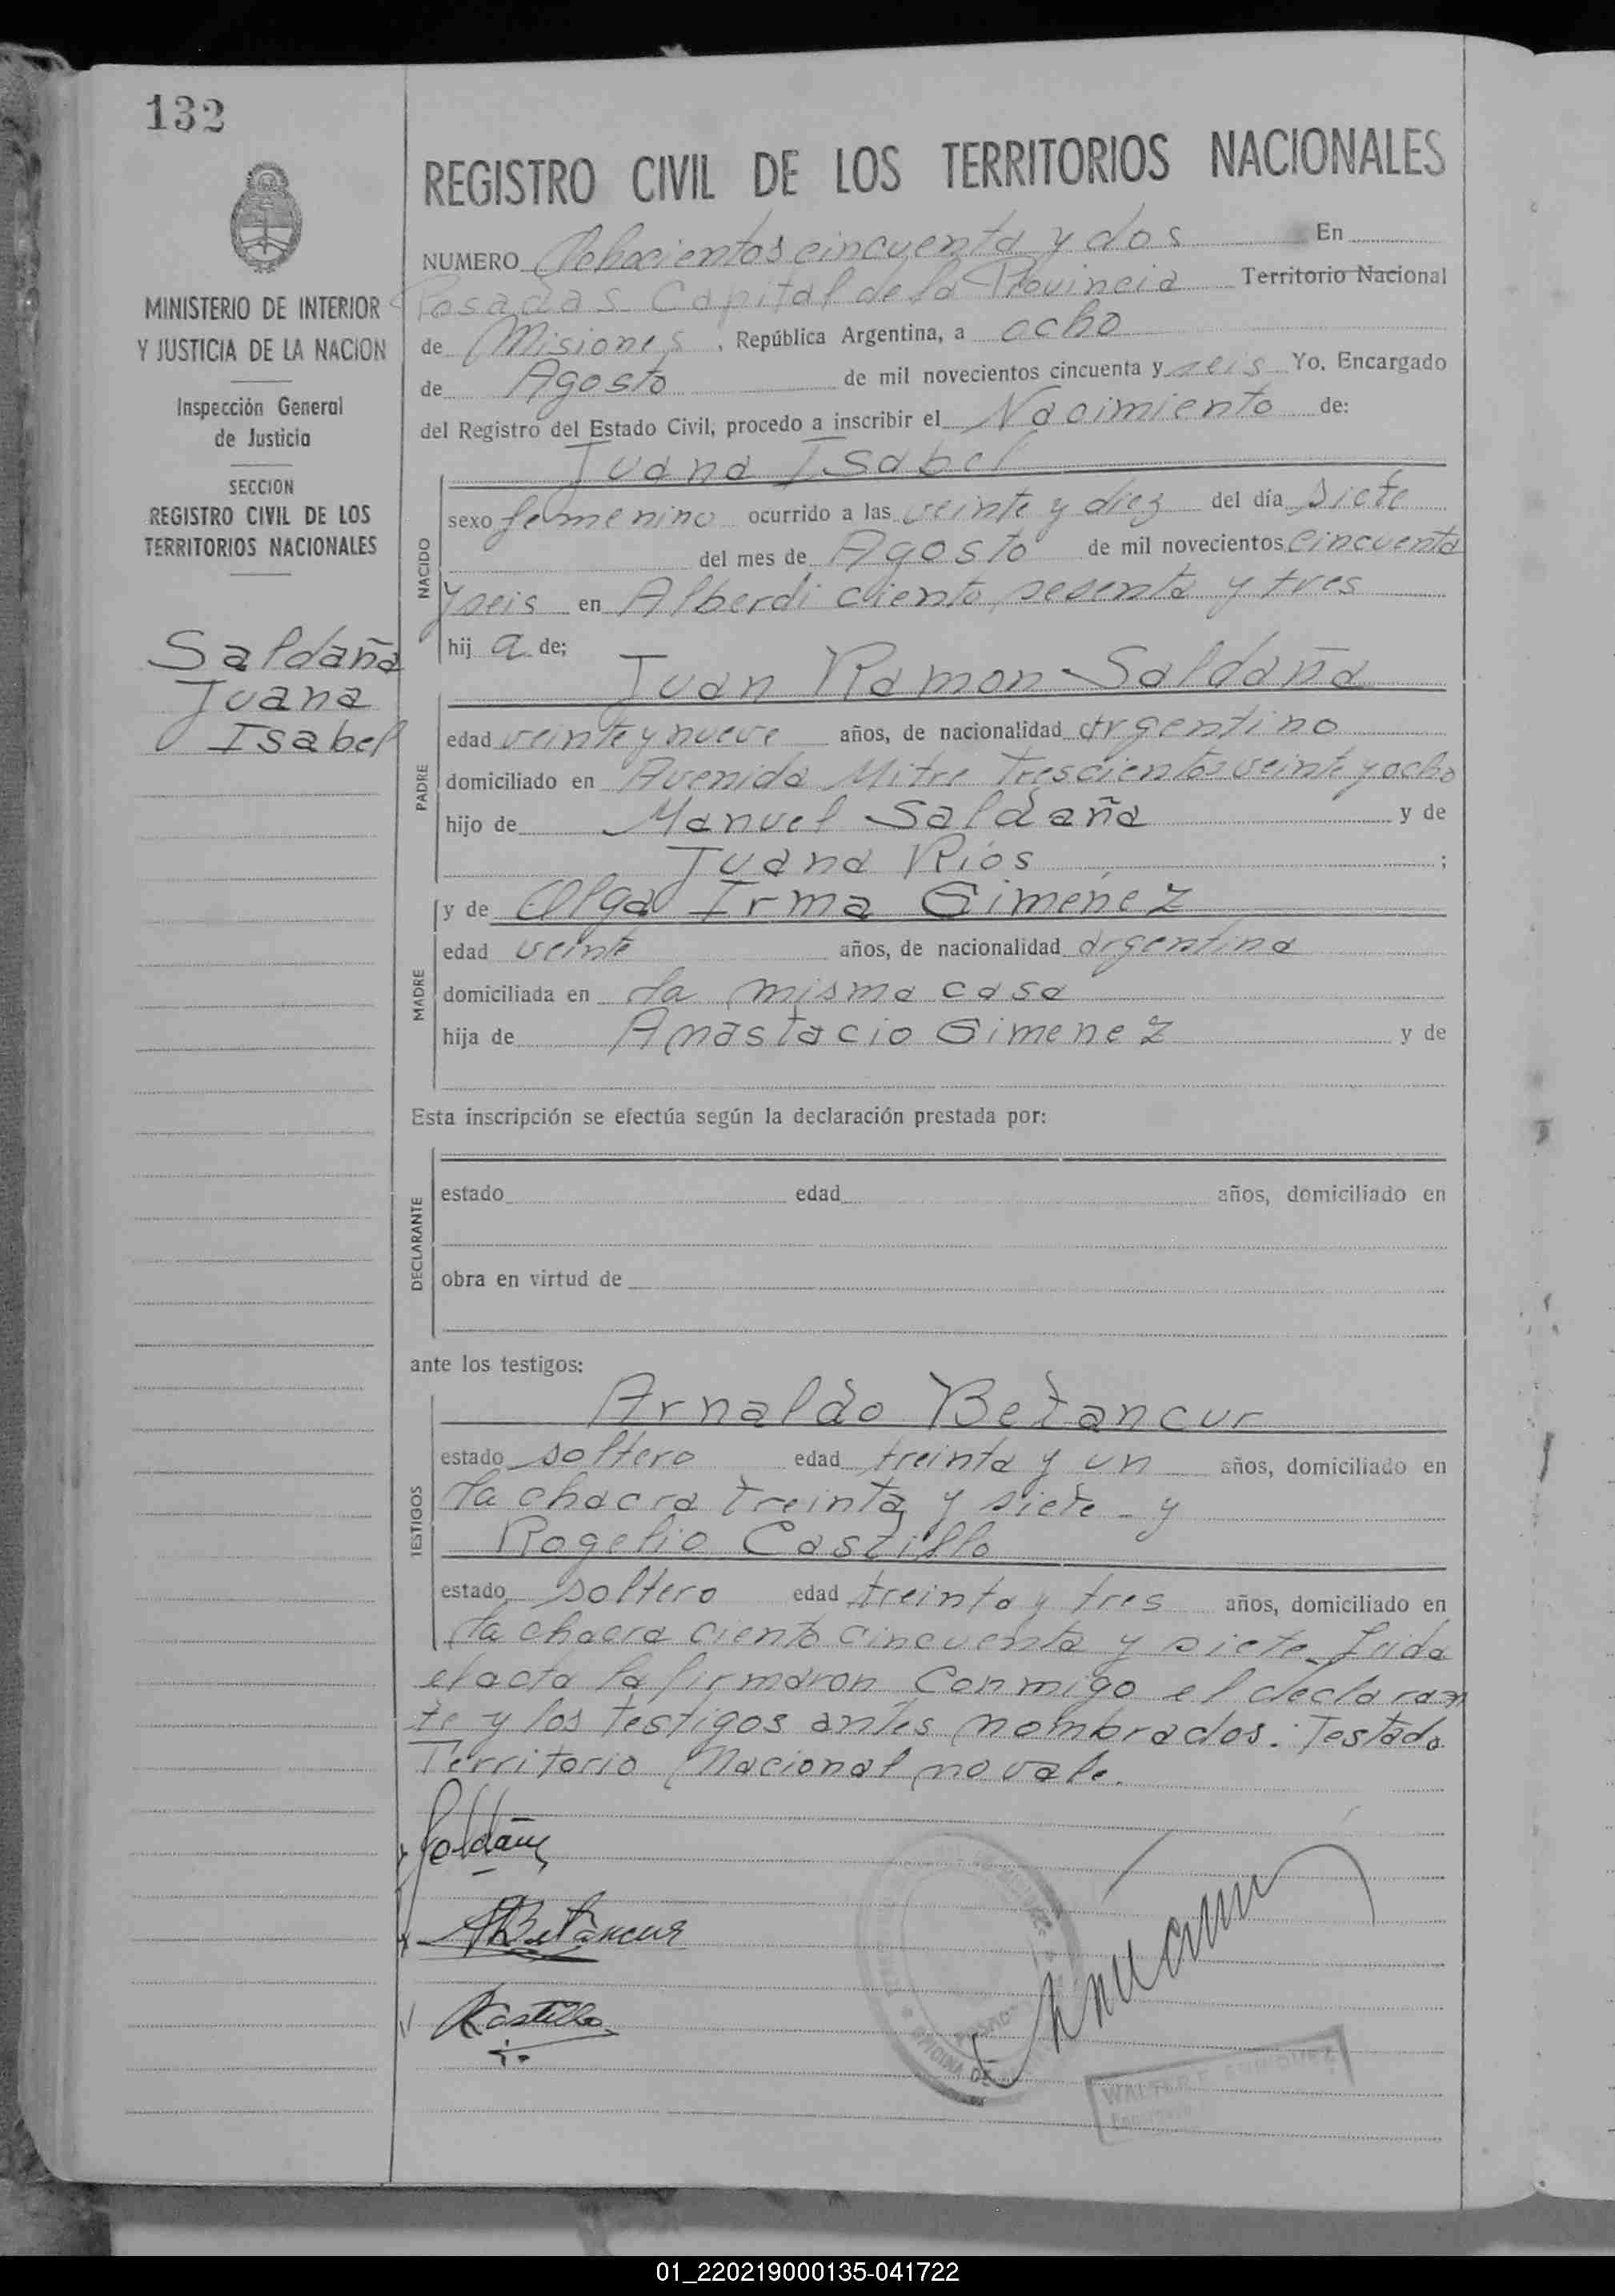 132
MINISTERIO DE INTERIOR
Y JUSTICIA DE LA NACION
Inspección General
de Justicia
SECCION
REGISTRO CIVIL DE LOS
TERRITORIOS NACIONALES
Saldaña
Juana
Isabel
REGISTRO CIVIL DE LOS TERRITORIOS NACIONALES
NUMERO Ochocientos cincuenta y dos En
Posadas Capital de la Provincia Territorio Nacional
de Misiones, República Argentina, a ocho
de Agosto de mil novecientos cincuenta y seis Yo, Encargado
del Registro del Estado Civil, procedo a inscribir el Nacimiento de:
Juana Isabel
NACIDO
sexo femenino ocurrido a las veinte y diez del día siete
del mes de Agosto de mil novecientos cincuenta
y seis en Alberdi ciento sesenta y tres
hij a de;
Juan Ramon Saldaña
PADRE
edad veinte y nueve años, de nacionalidad argentino
domiciliado en Avenida Mitre Trescientos veinte y ocho
hijo de Manuel Saldaña y de
Juana Ríos ;
y de Olga Irma Gimenez
MADRE
edad veinte años, de nacionalidad argentina
domiciliada en la misma casa
hija de Anastacio Gimenez y de
Esta inscripción se efectúa según la declaración prestada por:
DECLARANTE
estado edad años, domiciliado en
obra en virtud de
ante los testigos:
Arnaldo Betancur
TESTIGOS
estado soltero edad treinta y un años, domiciliado en
la chacra treinta y siete - y
Rogelio Castillo
estado soltero edad treinta y tres años, domiciliado en
la chacra ciento cincuenta y siete - Leida
el acta la firmaron conmigo el declaran
te y los testigos antes nombrados. Testado
Territorio Nacional no vale.
Saldaña
ABetancur
RCastillo
OFICINA DE
WALTER E. ENRIQUEZ
Encargado
01_220219000135-041722